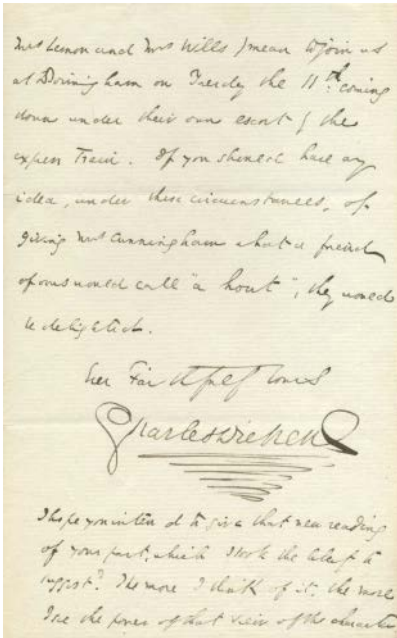 Mrs Lemon and Mrs Wills mean to join us
at Birmingham on Tuesday the 11th. coming
down under their own escort by the
express Train. If you should have any
idea, under these circumstances, of
giving Mrs Cunningham what a friend
of ours would call "a hout", they would
be delighted.
Ever Faithfully Yours
Charles Dickens
I hope you intend to give that new reading
of your part, which I took the liberty to
suggest? The more I think of it, the more
I see the power of that view of the character